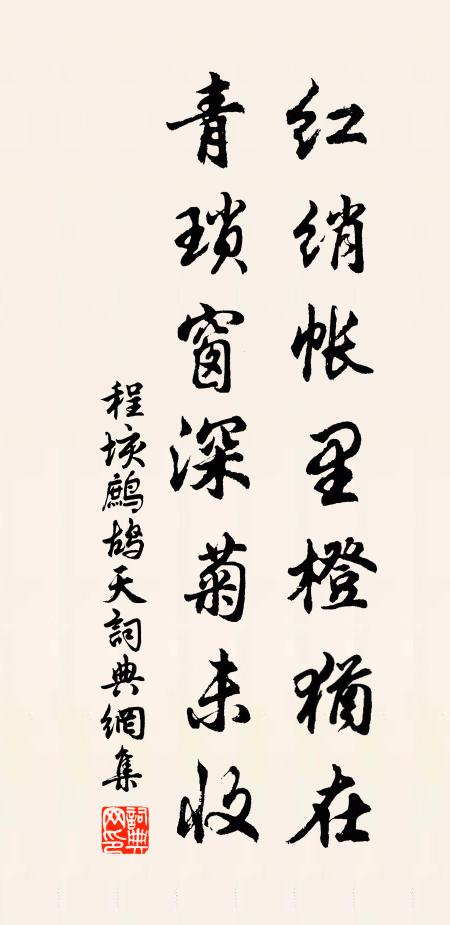 红绡帐里橙犹在
青琐窗深菊未收
程垓鹧鸪天詞典網集
詞典网印